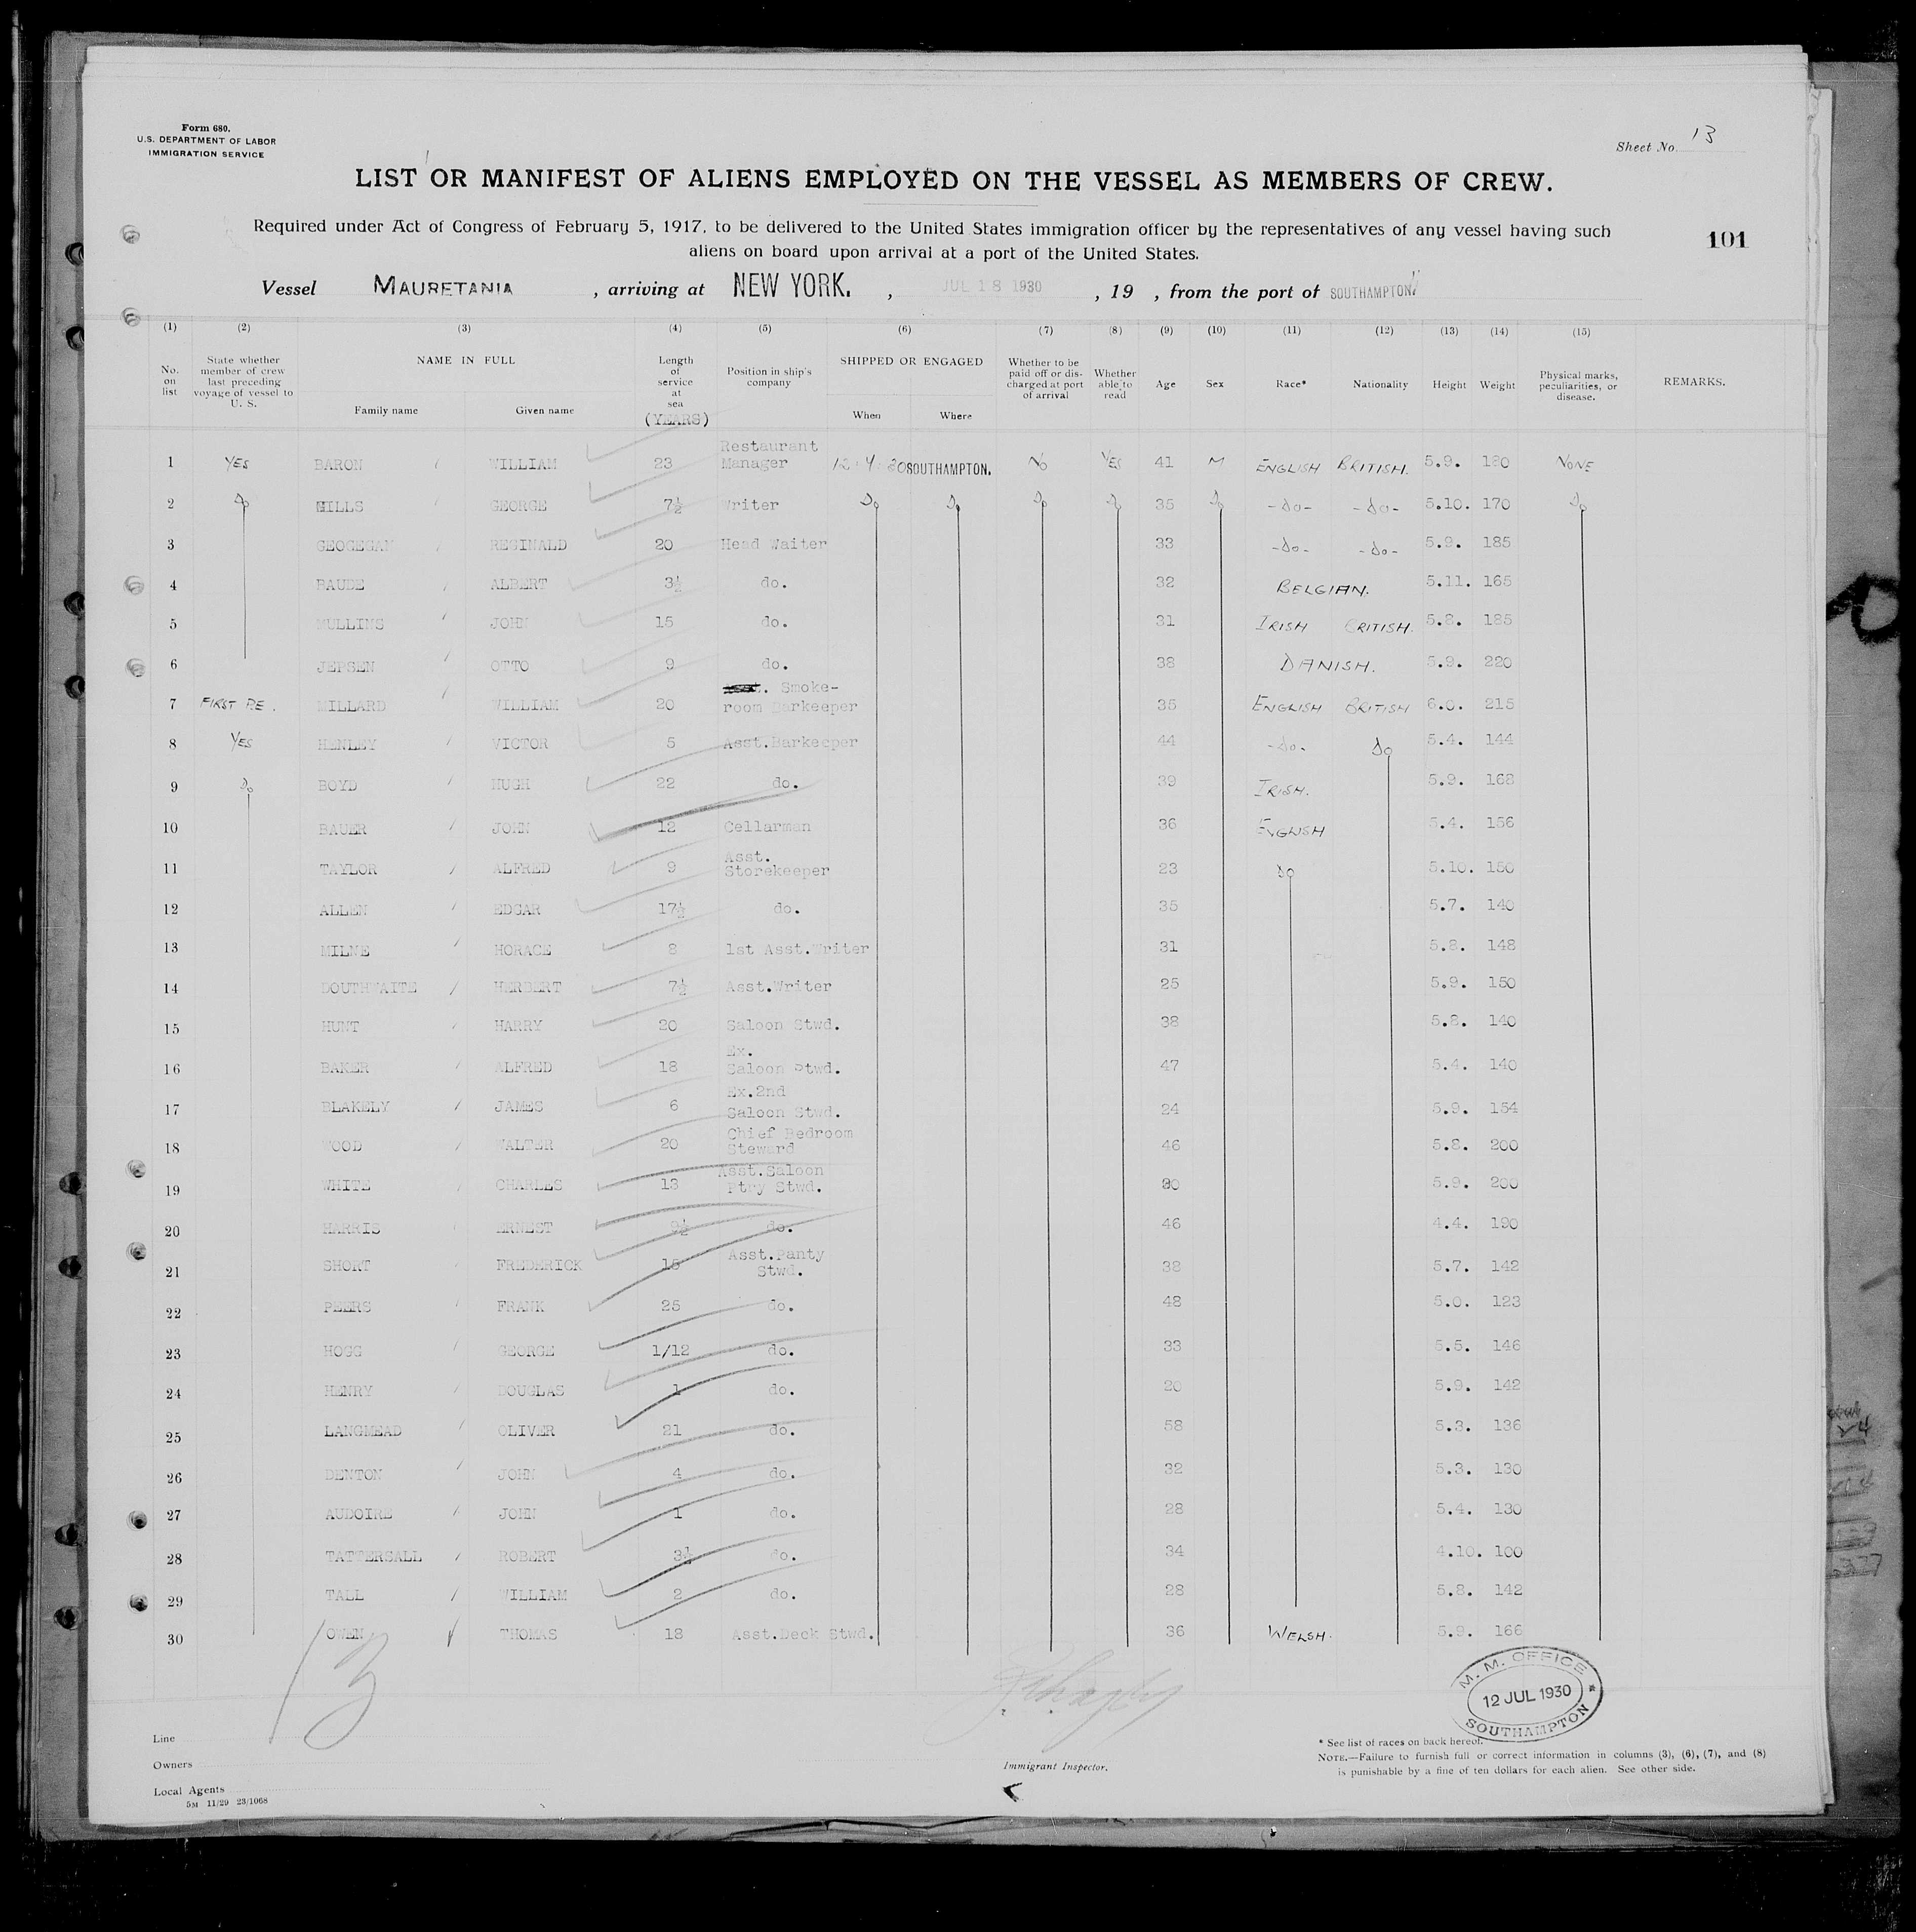 Form 680.
U.S. DEPARTMENT OF LABOR
IMMIGRATION SERVICE
Sheet No. 13
LIST OR MANIFEST OF ALIENS EMPLOYED ON THE VESSEL AS MEMBERS OF CREW.
Required under Act of Congress of February 5, 1917, to be delivered to the United States immigration officer by the representatives of any vessel having such
aliens on board upon arrival at a port of the United States.
101
Vessel MAURETANIA , arriving at NEW YORK. , JUL 18 1930 , 19 , from the port of SOUTHAMPTON.
(1) (2) (3) (4) (5) (6) (7) (8) (9) (10) (11) (12) (13) (14) (15)
No. on list State whether member of crew last preceding voyage of vessel to U. S. NAME IN FULL Family name Given name Length of service at sea (YEARS) Position in ship's company SHIPPED OR ENGAGED When Where Whether to be paid off or discharged at port of arrival Whether able to read Age Sex Race* Nationality Height Weight Physical marks, peculiarities, or disease. REMARKS.
1 YES BARON WILLIAM 23 Restaurant Manager SOUTHAMPTON. NO YES 41 M ENGLISH BRITISH. 5.9. 180 NONE
2 Do HILLS GEORGE 7½ Writer Do Do Do Do 35 Do -do- -do- 5.10. 170 Do
3 GEOGEGAN REGINALD 20 Head Waiter 33 -do- -do- 5.9. 185
4 BAUDE ALBERT 3½ do. 32 BELGIAN. 5.11. 165
5 MULLINS JOHN 15 do. 31 IRISH BRITISH. 5.8. 185
6 JEPSEN OTTO 9 do. 38 DANISH. 5.9. 220
7 FIRST RE. MILLARD WILLIAM 20 Smoke-room Barkeeper 35 ENGLISH BRITISH 6.0. 215
8 YES HENLEY VICTOR 5 Asst.Barkeeper 44 -do- Do 5.4. 144
9 Do BOYD HUGH 22 do. 39 IRISH. 5.9. 168
10 BAUER JOHN 12 Cellarman 36 ENGLISH 5.4. 156
11 TAYLOR ALFRED 9 Asst. Storekeeper 23 Do 5.10. 150
12 ALLEN EDGAR 17½ do. 35 5.7. 140
13 MILNE HORACE 8 1st Asst.Writer 31 5.8. 148
14 DOUTHWAITE HERBERT 7½ Asst.Writer 25 5.9. 150
15 HUNT HARRY 20 Saloon Stwd. 38 5.8. 140
16 BAKER ALFRED 18 Ex. Saloon Stwd. 47 5.4. 140
17 BLAKELY JAMES 6 Ex.2nd Saloon Stwd. 24 5.9. 154
18 WOOD WALTER 20 Chief Bedroom Steward 46 5.8. 200
19 WHITE CHARLES 13 Asst.Saloon Ptry Stwd. 30 5.9. 200
20 HARRIS ERNEST 9½ do. 46 4.4. 190
21 SHORT FREDERICK 15 Asst.Panty Stwd. 38 5.7. 142
22 PEERS FRANK 25 do. 48 5.0. 123
23 HOGG GEORGE 1/12 do. 33 5.5. 146
24 HENRY DOUGLAS 1 do. 20 5.9. 142
25 LANGMEAD OLIVER 21 do. 58 5.3. 136
26 DENTON JOHN 4 do. 32 5.3. 130
27 AUDOIRE JOHN 1 do. 28 5.4. 130
28 TATTERSALL ROBERT do. 34 4.10. 100
29 TALL WILLIAM 2 do. 28 5.8. 142
30 OWEN THOMAS 18 Asst.Deck Stwd. 36 WELSH. 5.9. 166
13
M. M. OFFICE
12 JUL 1930
SOUTHAMPTON
Line
Owners
Local Agents
5M 11/29 23/1068
Immigrant Inspector.
* See list of races on back hereof.
NOTE.—Failure to furnish full or correct information in columns (3), (6), (7), and (8)
is punishable by a fine of ten dollars for each alien. See other side.